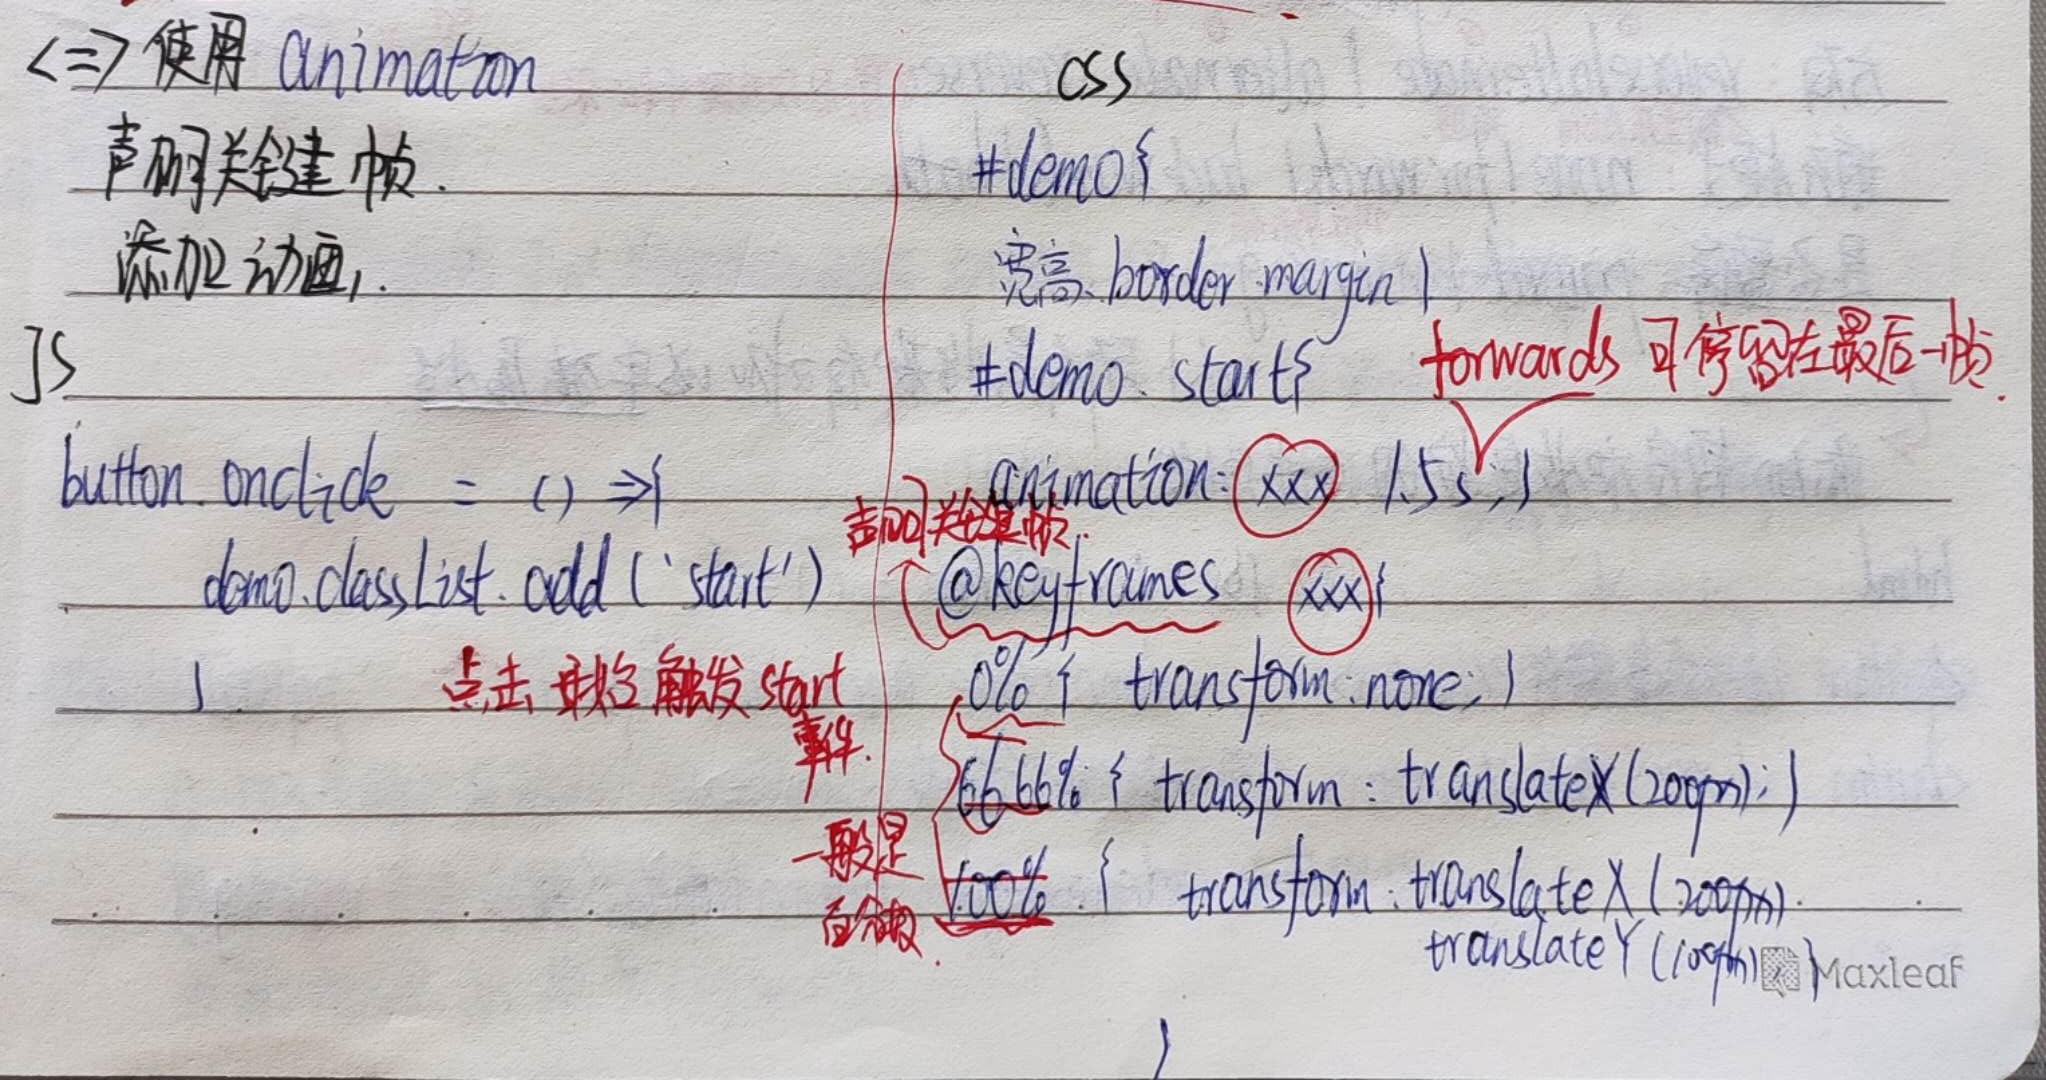 <二> 使用 animation
声明关键帧.
添加动画.
JS
button.onclick = () =>{
demo.classList.add('start')
}
点击按钮触发start
事件.
css
#demo{
宽高、border margin }
#demo.start{
forwards 可停留在最后一帧.
animation: xxx 1.5s;}
声明关键帧.
@keyframes xxx{
0% { transform:none; }
66.66% { transform: translateX(200px); }
100% { transform: translateX(200px)
translateY(100px) }
一般是
百分数.
}
Maxleaf